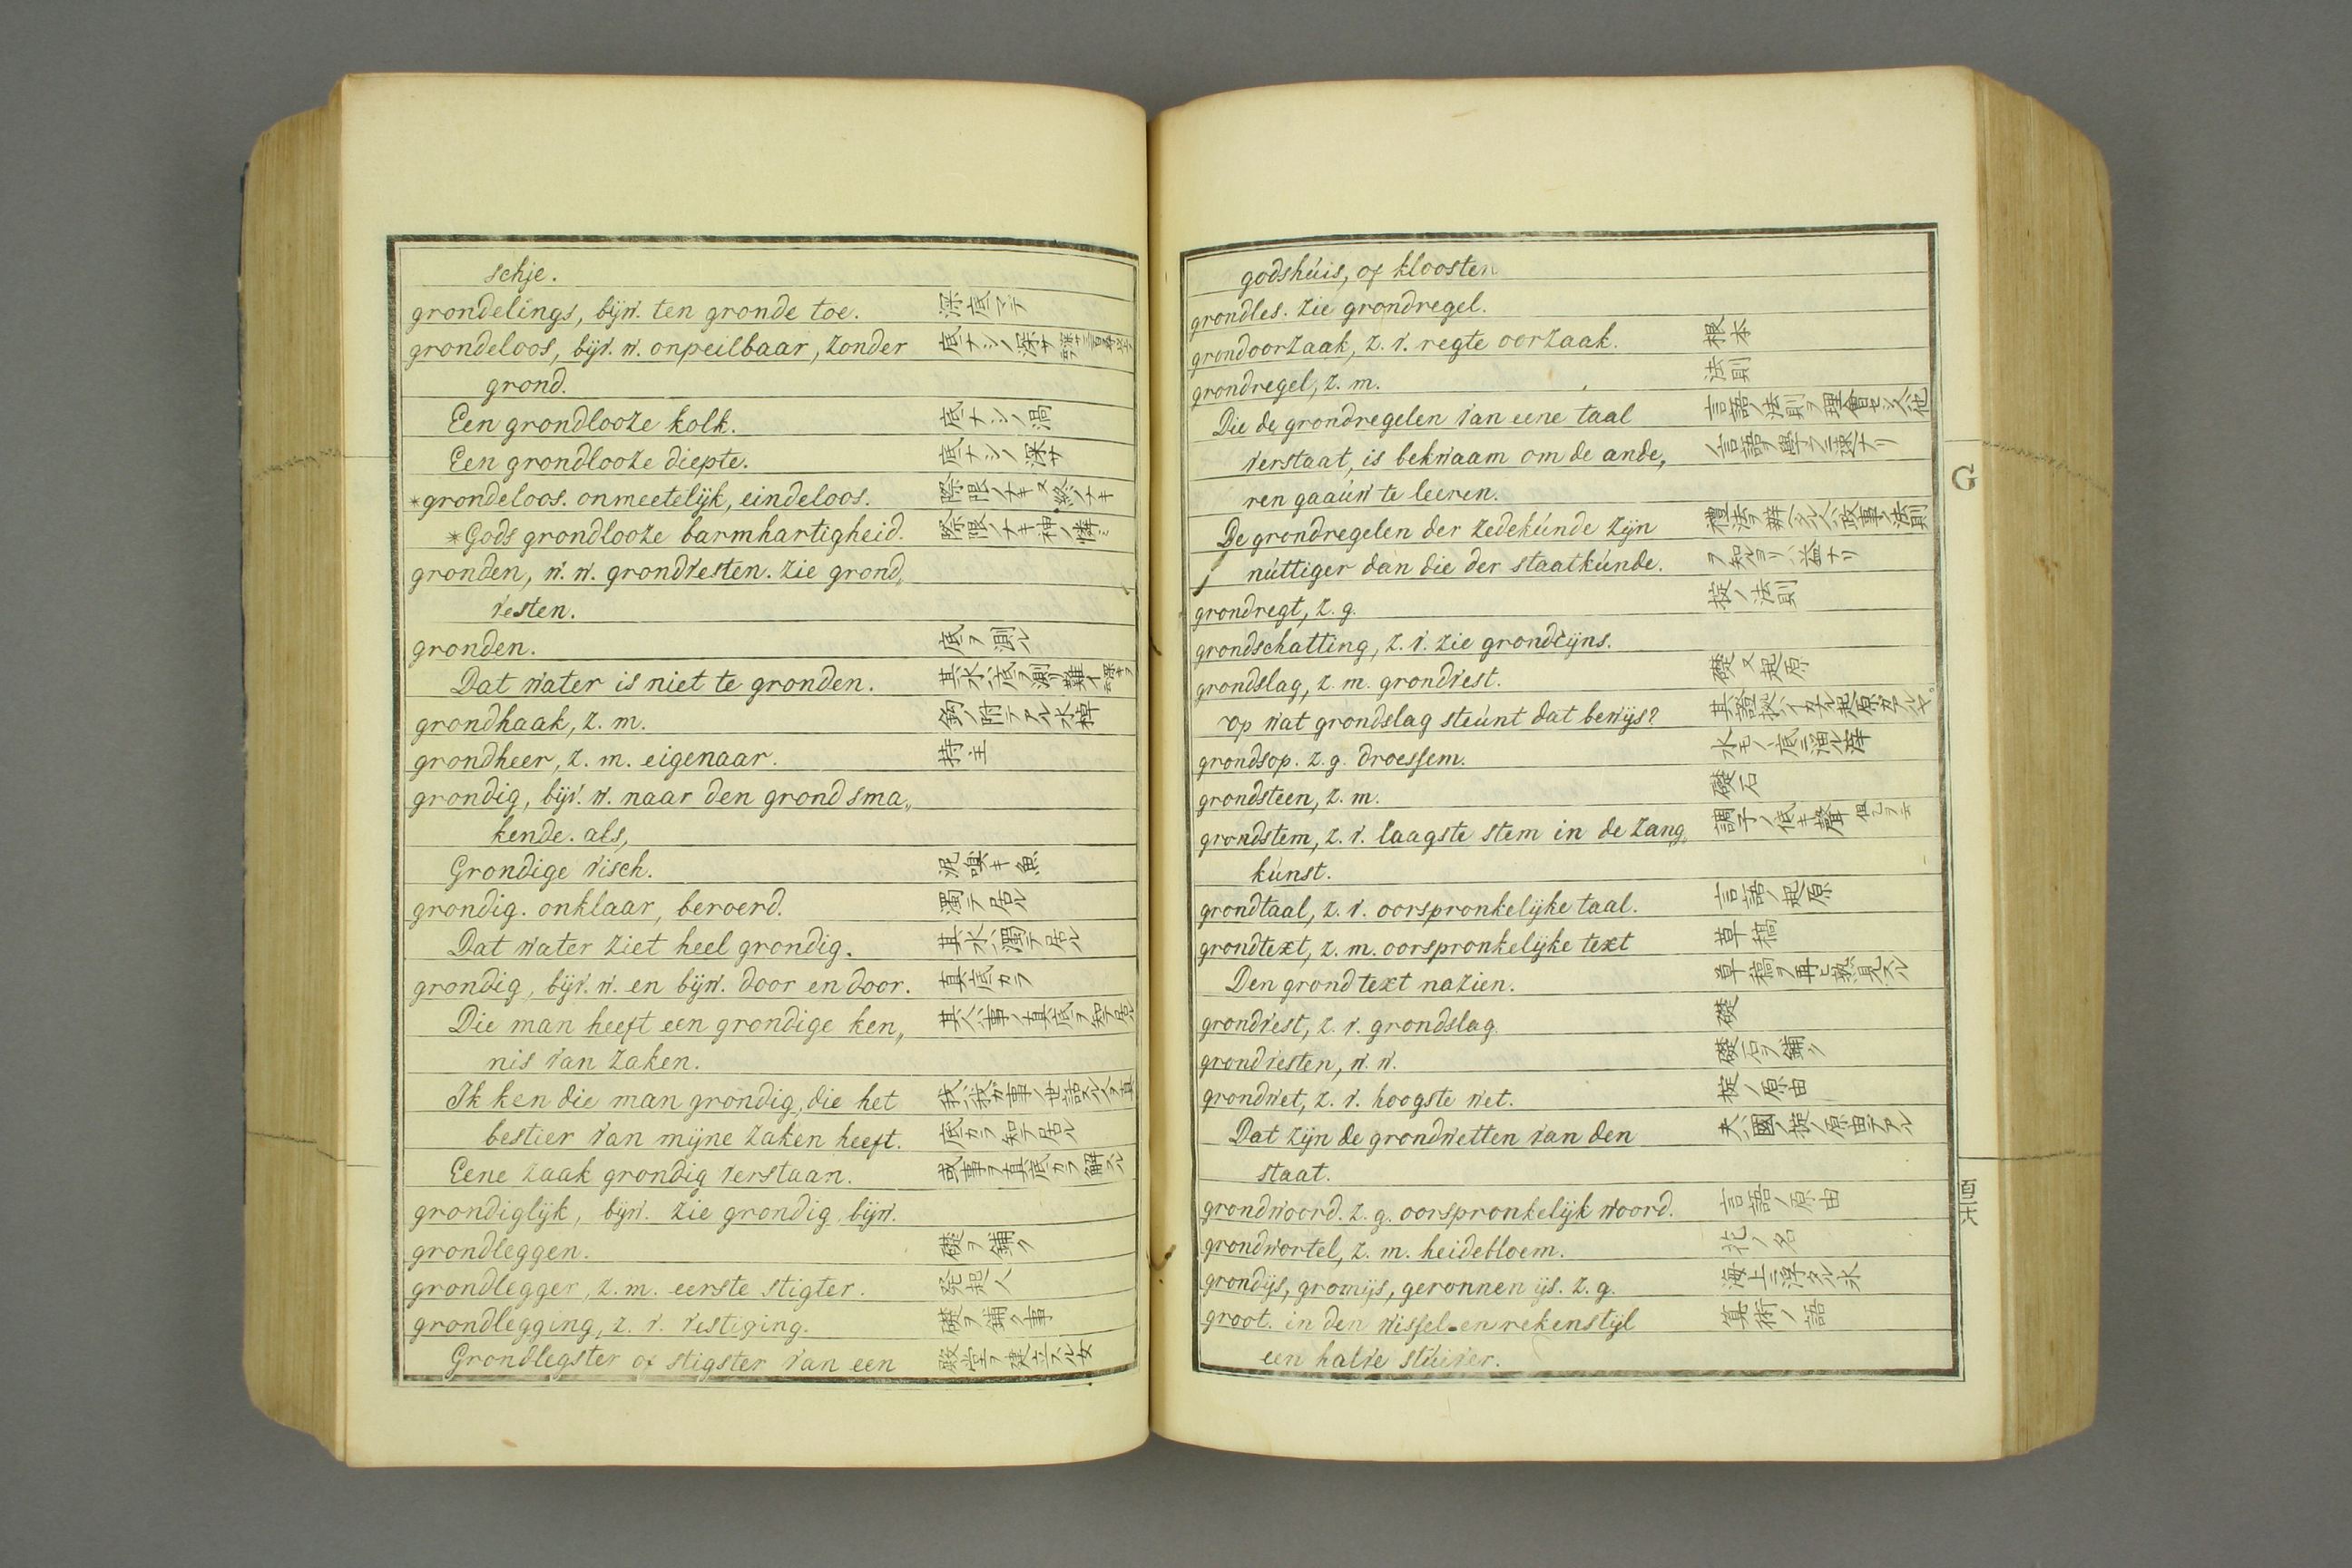 schje.
grondelings, bijw. ten gronde toe. 深底マデ
grondeloos, bijv. w. onpeilbaar, zonder 底ナシノ深サ
grond.
Een grondlooze kolk. 底ナシノ渦
Een grondlooze diepte. 底ナシノ深サ
*grondeloos. onmeetelijk, eindeloos. 際限ノナキ又終ノナキ
*Gods grondlooze barmhartigheid. 際限ノナキ神ノ憐ミ
gronden, w. w. grondvesten. zie grond„
vesten.
gronden. 底ヲ測ル
Dat water is niet te gronden. 其水ハ底ヲ測リ難イ
grondhaak, z. m. 鈎ノ附テアル水棹
grondheer, z. m. eigenaar. 持主
grondig, bijv. w. naar den grond sma„
kende. als,
Grondige visch. 泥嗅キ魚
grondig. onklaar, beroerd. 濁テ居ル
Dat water ziet heel grondig. 其水ハ濁テ居ル
grondig, bijv. w. en bijw. door en door. 真底カラ
Die man heeft een grondige ken„ 其人ハ事ノ真底ヲ知テ居ル
nis van zaken.
Ik ken die man grondig, die het 我ハ我カ事ノ世話スル人ヲ真
bestier van mijne zaken heeft. 底カラ知テ居ル
Eene zaak grondig verstaan. 或事ヲ真底カラ解スル
grondiglijk, bijw. zie grondig, bijw.
grondleggen. 礎ヲ鋪ク
grondlegger, z. m. eerste stigter. 発起人
grondlegging, z. v. vestiging. 礎ヲ鋪ク事
Grondlegster of stigster van een 殿堂ヲ建立スル女
godshúis, of klooster
grondles. zie grondregel.
grondoorzaak, z. v. regte oorzaak. 根本
grondregel, z. m. 法則
Die de grondregelen van eene taal 言語ノ法則ヲ理會セシ人ハ他
verstaat, is bekwaam om de ande„ ノ言語ヲ學フニ速ナリ
ren gaaúw te leeren.
De grondregelen der zedekúnde zijn 禮法ヲ辨ヘタル人ハ政事ノ法則
núttiger dan die der staatkúnde. ヲ知ルヨリハ益ナリ
grondregt, z. g. 掟ノ法則
grondschatting, z. v. zie grondcijns.
grondslag, z. m. grondvest. 礎又起原
op wat grondslag steúnt dat bewijs? 其證拠ハイカナル起原カアルヤ。
grondsop. z. g. droessem. 水モノノ底ニ溜ル滓
grondsteen, z. m. 礎石
grondstem, z. v. laagste stem in de zang„ 調子ノ低キ聲
kúnst.
grondtaal, z. v. oorspronkelijke taal. 言語ノ起原
grondtext, z. m. oorspronkelijke text 草稿
Den grondtext nazien. 草稿ヲ再ヒ熟見スル
grondvest, z. v. grondslag. 礎
grondvesten, w. w. 礎石ヲ鋪ク
grondwet, z. v. hoogste wet. 掟ノ原由
Dat zijn de grondwetten van den 夫ハ國ノ掟ノ原由デアル
staat.
grondwoord. z. g. oorspronkelijk woord. 言語ノ原由
grondwortel, z. m. heidebloem. 花ノ名
grondijs, gromijs, geronnen ijs. z. g. 海上ニ浮タル氷
groot. in den wissel=en rekenstijl 算術ノ語
een halve stúiver.
G